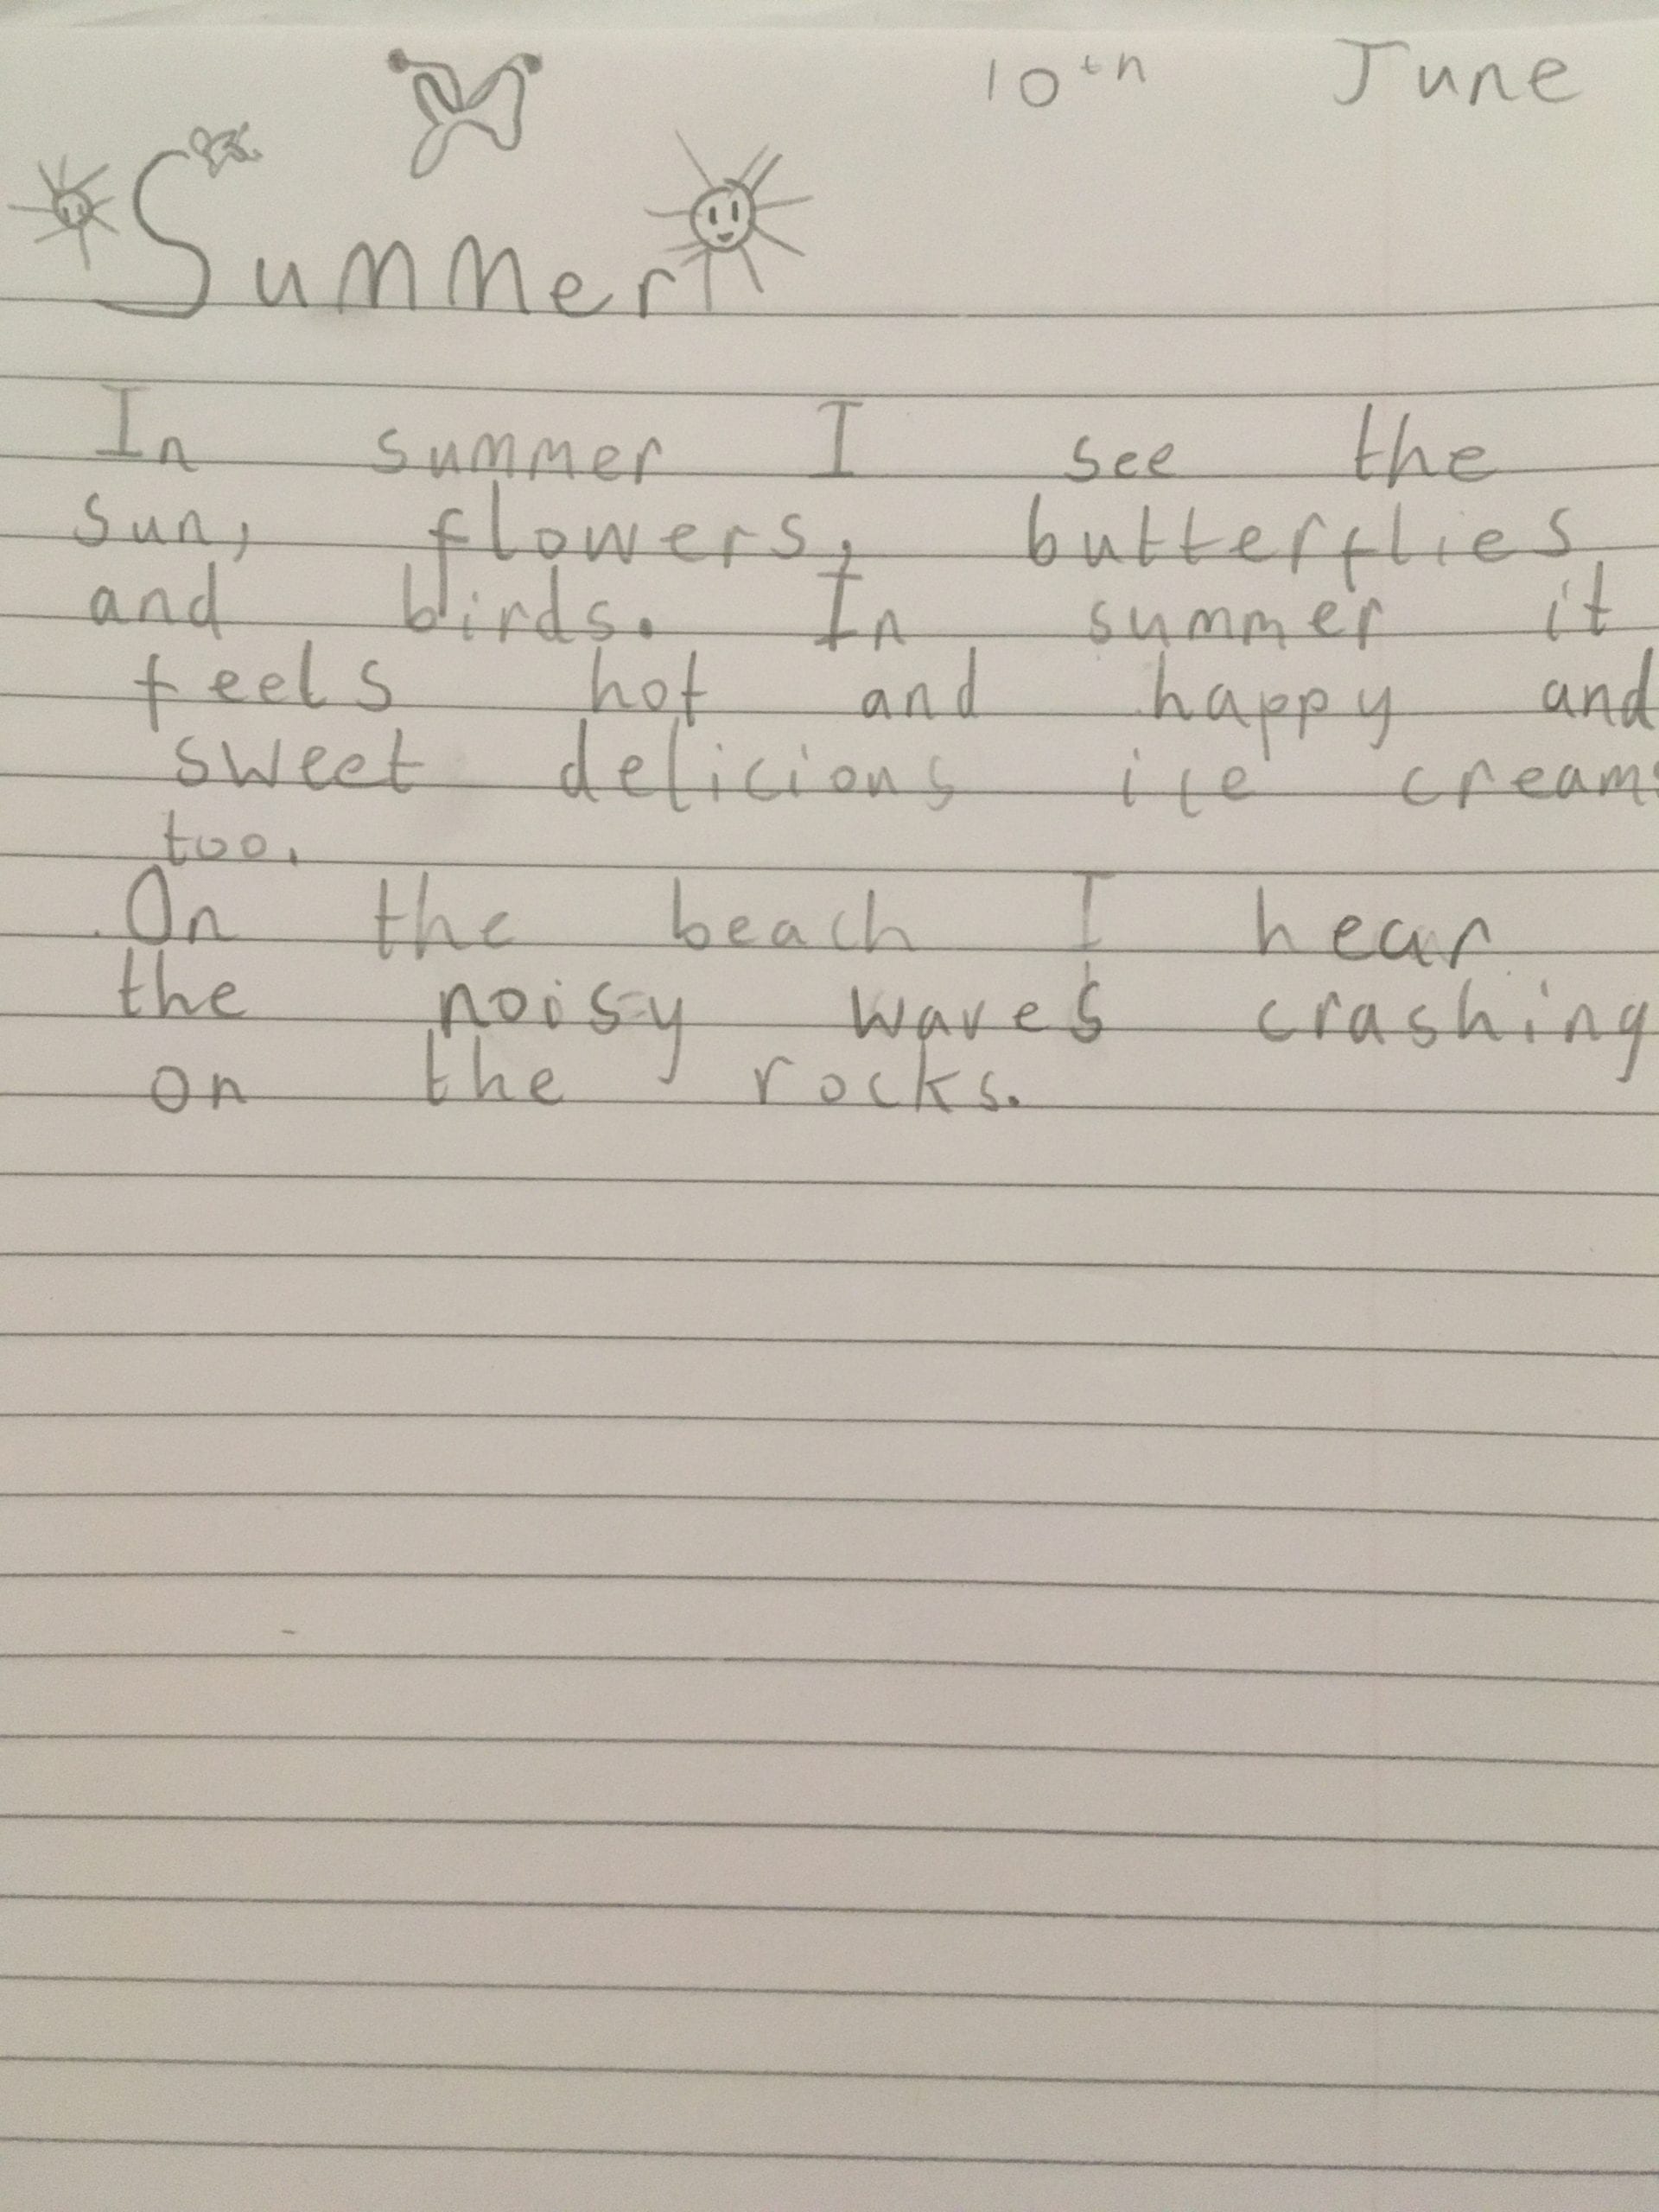 10th June
Summer
In summer I see the
sun, flowers, butterflies
and birds. In summer it
feels hot and happy and
sweet delicious ice creams
too.
On the beach I hear
the noisy waves crashing
on the rocks.